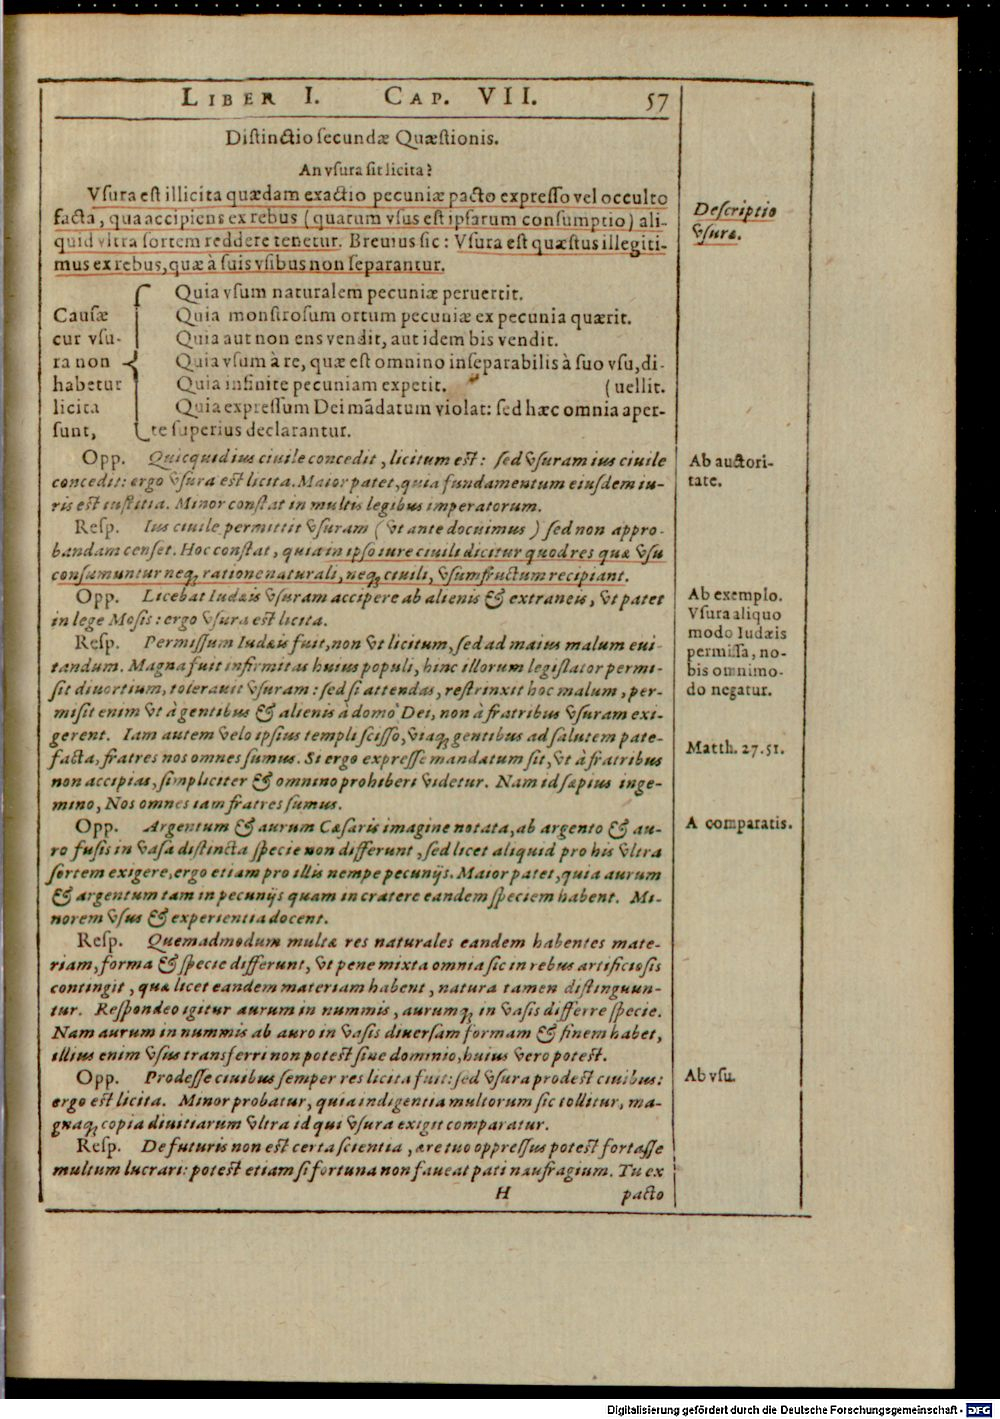 LIBER I. CAP. VII. 57
Distinctio secundæ Quæstionis.
An vsura sit licita?
Vsura est illicita quædam exactio pecuniæ pacto expresso vel occulto
facta, qua accipiens ex rebus (quarum vsus est ipsarum consumptio) ali-
quid vltra sortem reddere tenetur. Breuius sic: Vsura est quæstus illegiti-
mus ex rebus, quæ à suis vsibus non separantur.
Descriptio
vsuræ.
Causæ
cur vsu-
ra non
habetur
licita
sunt,
Quia vsum naturalem pecuniæ peruertit.
Quia monstrosum ortum pecuniæ ex pecunia quærit.
Quia aut non ens vendit, aut idem bis vendit.
Quia vsum à re, quæ est omnino inseparabilis à suo vsu, di-
Quia infinite pecuniam expetit. (uellit.
Quia expressum Dei mãdatum violat: sed hæc omnia aper-
te superius declarantur.
Opp. Quicquid ius ciuile concedit, licitum est: sed vsuram ius ciuile
concedit: ergo vsura est licita. Maior patet, quia fundamentum eiusdem iu-
ris est iustitia. Minor constat in multis legibus imperatorum.
Ab auctori-
tate.
Resp. Ius ciuile permittit vsuram (vt ante docuimus) sed non appro-
bandam censet. Hoc constat, quia in ipso iure ciuili dicitur quod res quæ vsu
consumuntur neq; ratione naturali, neq; ciuili, vsumfructum recipiant.
Opp. Licebat Iudæis vsuram accipere ab alienis & extraneis, vt patet
in lege Mosis: ergo vsura est licita.
Ab exemplo.
Vsura aliquo
modo Iudæis
permissa, no-
bis omnimo-
do negatur.
Resp. Permissum Iudæis fuit, non vt licitum, sed ad maius malum eui-
tandum. Magna fuit infirmitas huius populi, hinc illorum legislator permi-
sit diuortium, tolerauit vsuram: sed si attendas, restrinxit hoc malum, per-
misit enim vt à gentibus & alienis à domo Dei, non à fratribus vsuram exi-
gerent. Iam autem velo ipsius templi scisso, viaq; gentibus ad salutem pate-
facta, fratres nos omnes sumus. Si ergo expresse mandatum sit, vt à fratribus
non accipias, simpliciter & omnino prohiberi videtur. Nam id sæpius inge-
mino, Nos omnes iam fratres sumus.
Matth. 27. 51.
Opp. Argentum & aurum Cæsaris imagine notata, ab argento & au-
ro fusis in vasa distincta specie non differunt, sed licet aliquid pro his vltra
sortem exigere, ergo etiam pro illis nempe pecunijs. Maior patet, quia aurum
& argentum tam in pecunijs quam in cratere eandem speciem habent. Mi-
norem vsus & experientia docent.
A comparatis.
Resp. Quemadmodum multæ res naturales eandem habentes mate-
riam, forma & specie differunt, vt pene mixta omnia sic in rebus artificiosis
contingit, quæ licet eandem materiam habent, natura tamen distinguun-
tur. Respondeo igitur aurum in nummis, aurumq; in vasis differre specie.
Nam aurum in nummis ab auro in vasis diuersam formam & finem habet,
illius enim vsus transferri non potest sine dominio, huius vero potest.
Opp. Prodesse ciuibus semper res licita fuit: sed vsura prodest ciuibus:
ergo est licita. Minor probatur, quia indigentia multorum sic tollitur, ma-
gnaq; copia diuitiarum vltra id qui vsura exigit comparatur.
Ab vsu.
Resp. De futuris non est certa scientia, ære tuo oppressus potest fortasse
multum lucrari: potest etiam si fortuna non faueat pati naufragium. Tu ex
H pacto
Digitalisierung gefördert durch die Deutsche Forschungsgemeinschaft - DFG